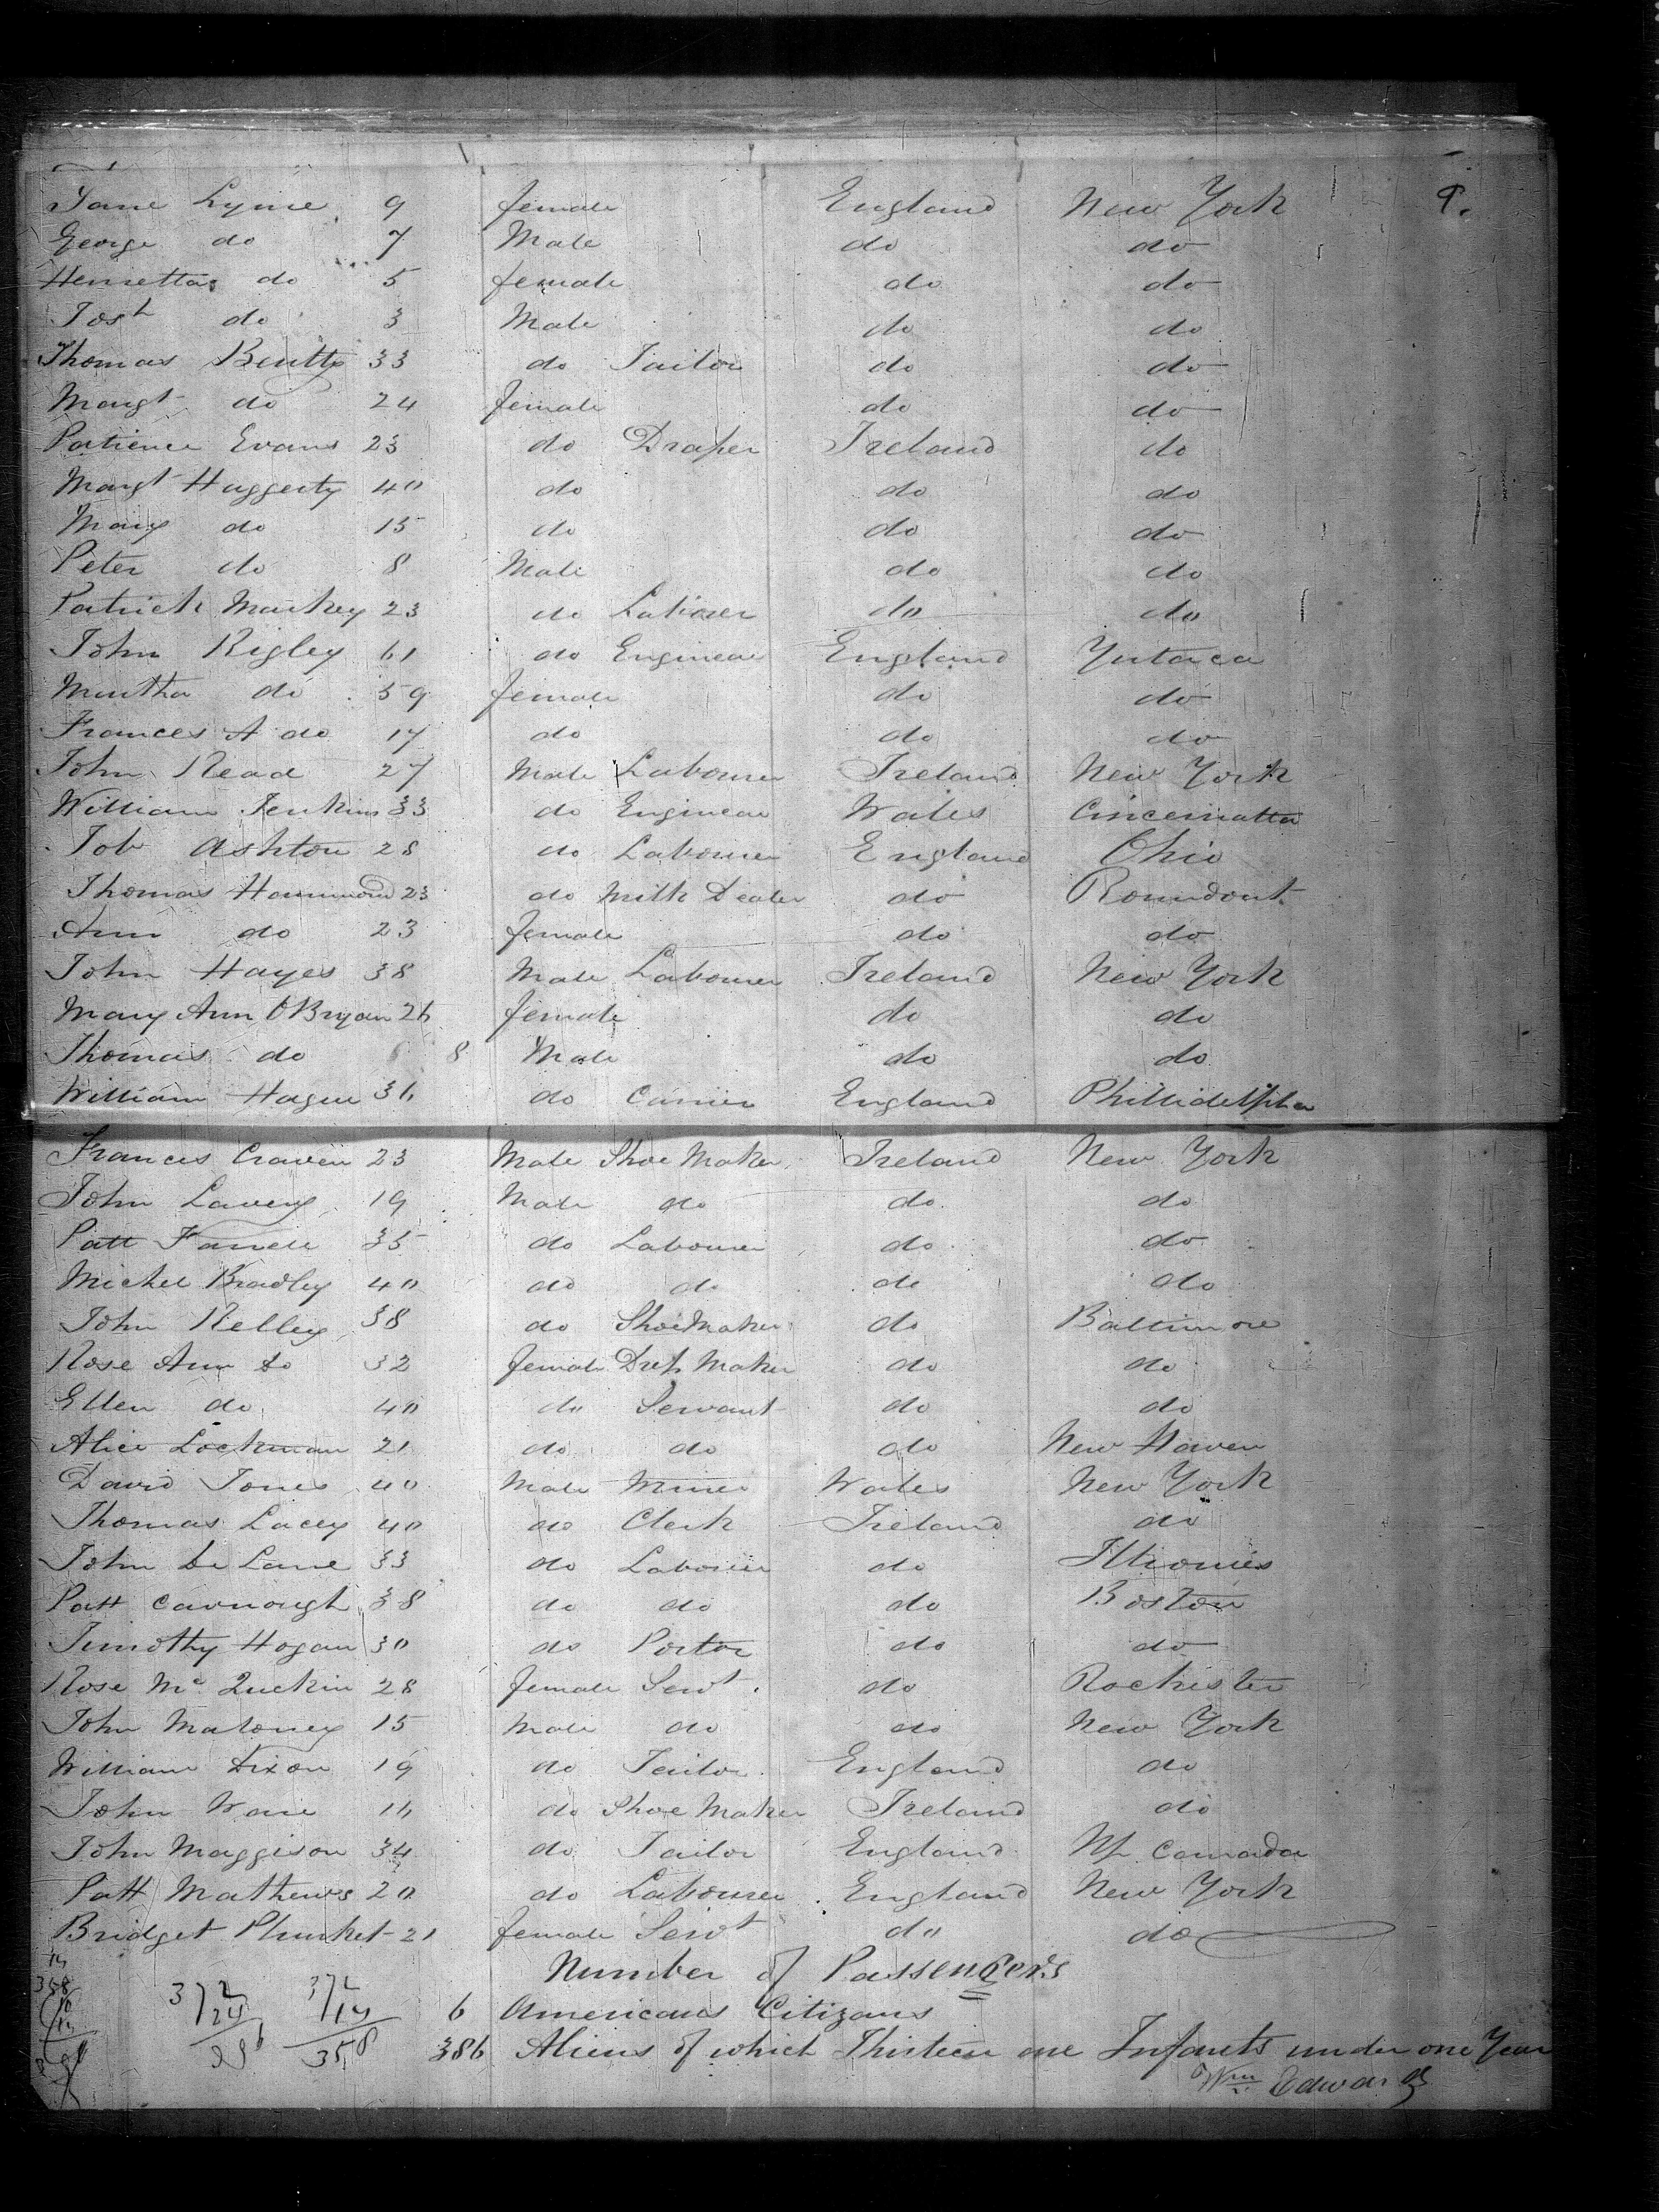 Jane Lyme 9 female England New York 9.
George do 7 Male do do
Henretta do 5 female do do
Josh do 3 Male do do
Thomas 33 do Tailor do do
Margt do 24 female do do
Patience Evans 23 do Draper Ireland do
Margt Haggerty 40 do do do
Mary do 15 do do do
Peter do 8 Male do do
Patrick Markey 23 do Labourer do do
John Rigley 61 do Enginear England Yutaca
Martha do 59 female do do
Frances A do 17 do do do
John Read 27 Male Labourer Ireland New York
William Jenkins 33 do Enginear Wales Cincernatta
Job Ashton 28 do Labourer England Ohio
Thomas Hammond 23 do Milk Dealer do Roundout
Ann do 23 female do do
John Hayes 38 Male Labourer Ireland New York
Mary Ann OBryan 26 female do do
Thomas do 8 Male do do
William Hague 36 do Currier England Phillidelphia
Frances Craven 23 Male Shoe Maker Ireland New York
John Lavery 19 Male do do do
Patt 35 do Labourer do do
Michel Bradley 40 do do do do
John Kelley 38 do Shoe Maker do Baltimore
Rose Ann do 32 female Dress Maker do do
Ellen do 40 do Servant do do
Alice Lockman 21 do do do New Haven
David Jones 40 Male Miner Wales New York
Thomas Lacey 40 do Clerk Ireland do
John De Lane 33 do Labourer do Illionies
Patt Cavnough 38 do do do Boston
Timothy Hogan 30 do Portor do do
Rose Mc Quckin 28 female Servt. do Rochister
John Maloney 15 Male do do New York
William Dixon 19 do Tailor England do
John Ware 16 do Shoe Maker Ireland do
John Maggison 34 do Tailor England Up Canada
Patt Mathews 20 do Labourer England New York
Bridget Plunket 21 female Servt do do
Number of Passengers
372 372
24 14
358
6 Americans Citizans
386 Aliens of which Thirteen are Infants under one Year
Wm Edwards